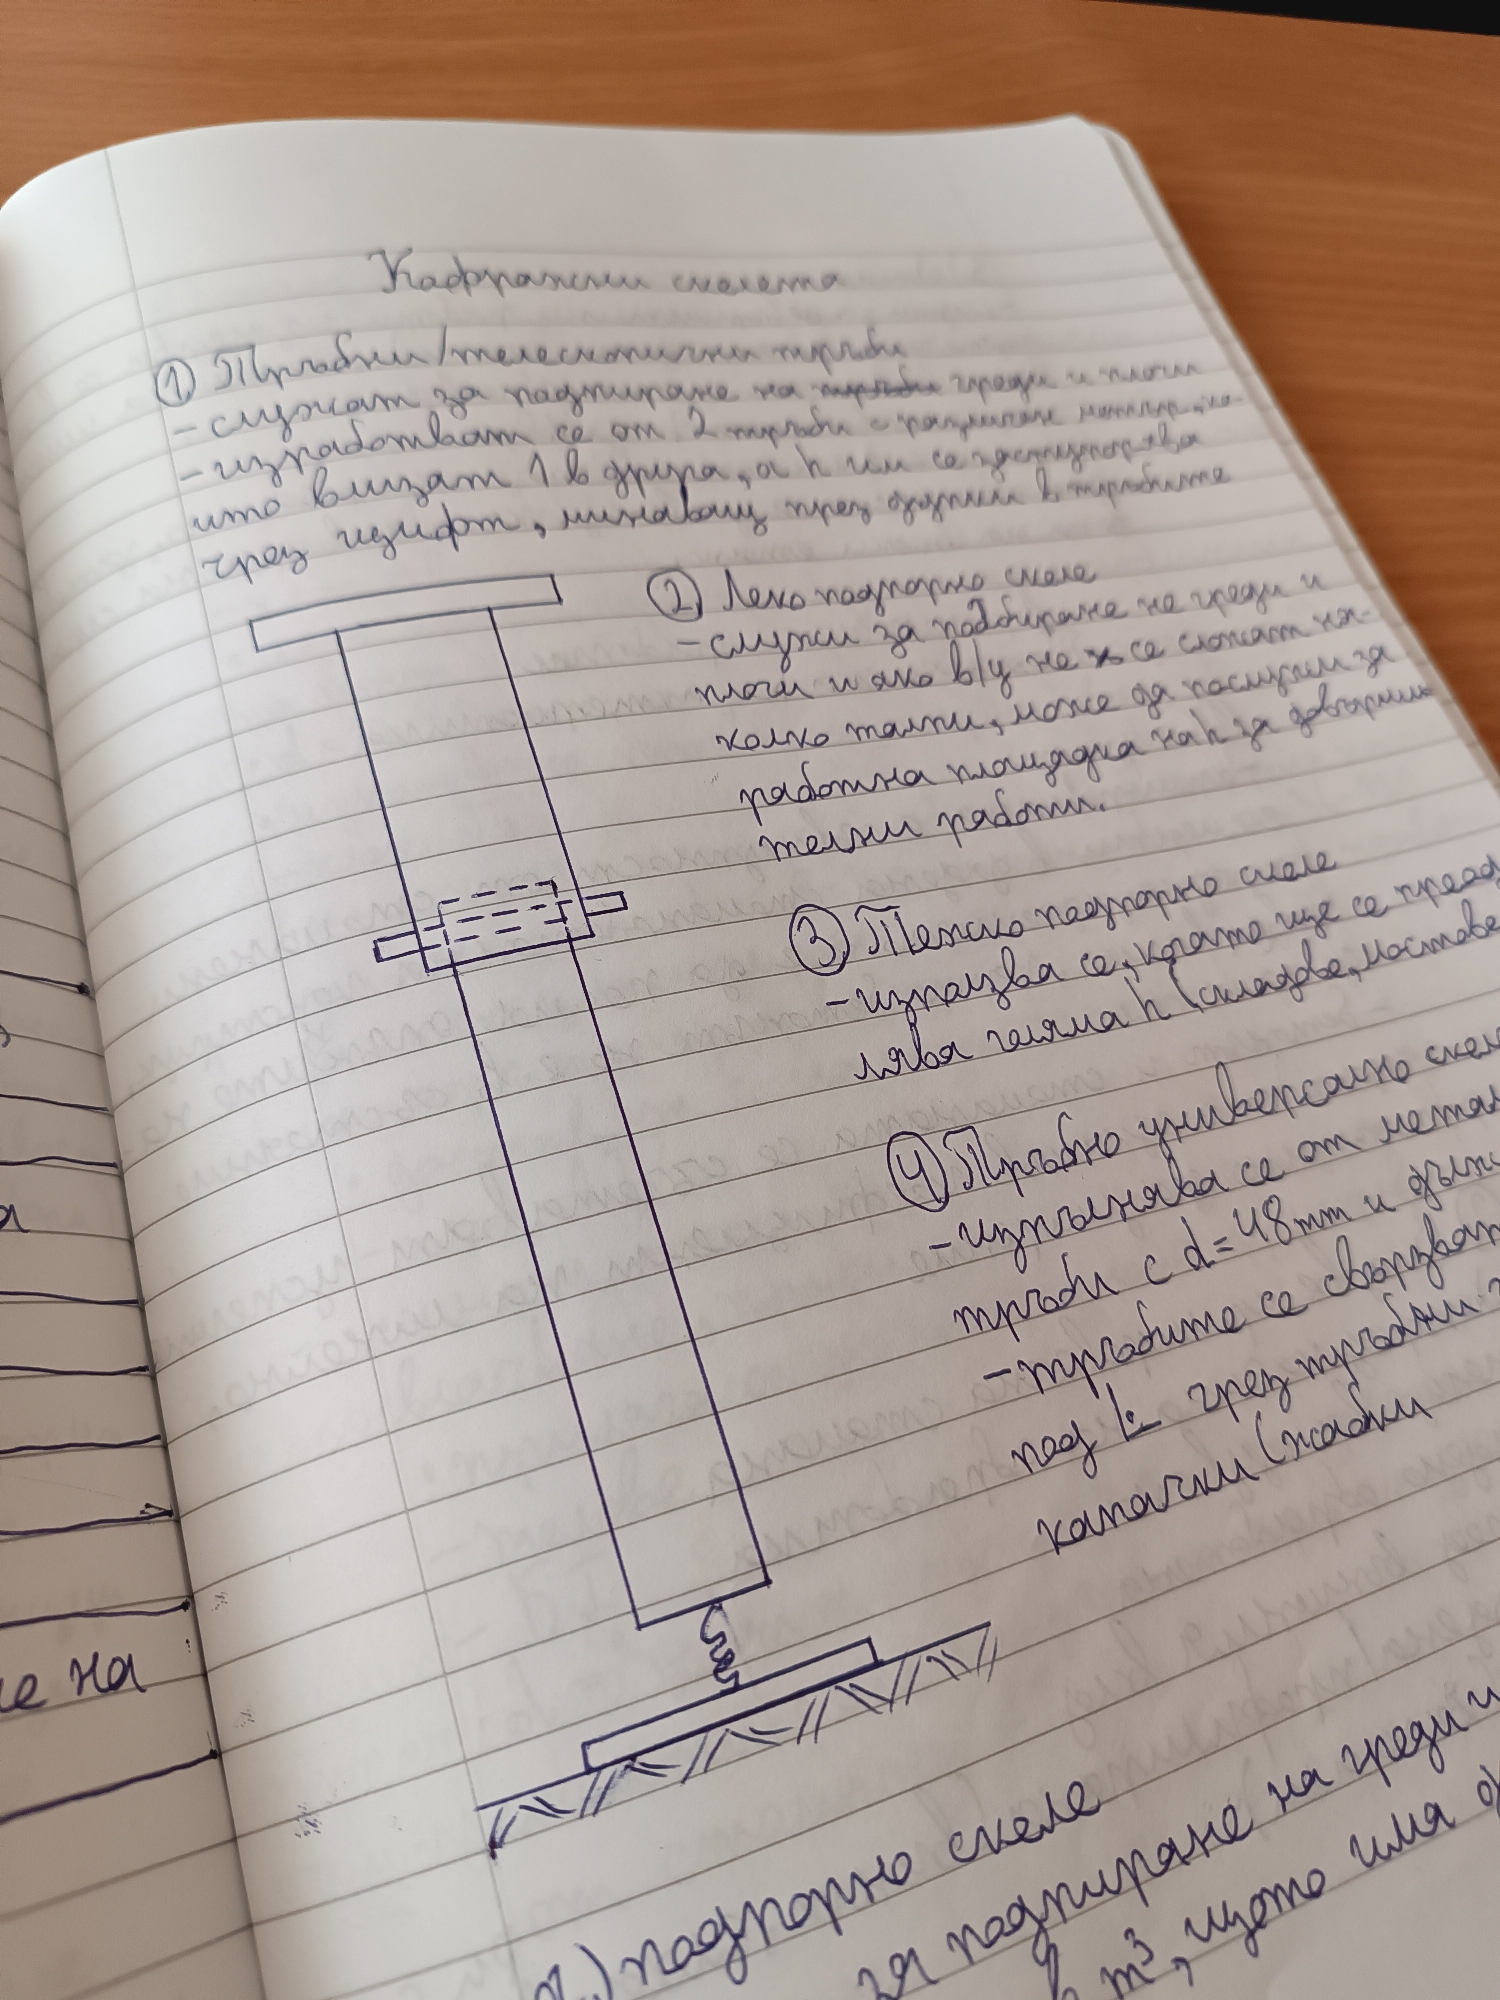 Кофражни скелета
① Тръбни/телескопични тръби
- служат за подпиране на тръби греди и плочи
- изработват се от 2 тръби с различен метър, ко-
ито влизат 1 в друга, а h им се застопорява
чрез щифт, минаващ през дупки в тръбите
② Леко подпорно скеле
- служи за подпиране на греди и
плочи и ако в/у не се сложат ня-
колко талпи, може да послужи за
работна площадка на h за довърши-
телни работи.
③ Тежко подпорно скеле
- използва се, когато ще се преодо
лява голяма h (складове, мостове
④ Тръбно универсално скеле
- изпълнява се от метал
тръби с d=48mm и дълж
- тръбите се свързват
под ∟ чрез тръбни
капачки (жабки
е на
а
подпорно скеле
за подпиране на греди и
в m³, щото има